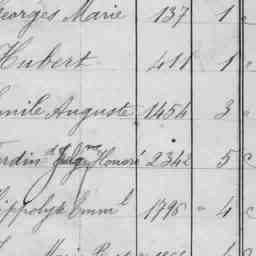 Georges Marie 137 1
Hubert 411 1
Emile Auguste 1454 3
Honoré 2342 5
Hippolyte Emm^l 1796 4
Marie